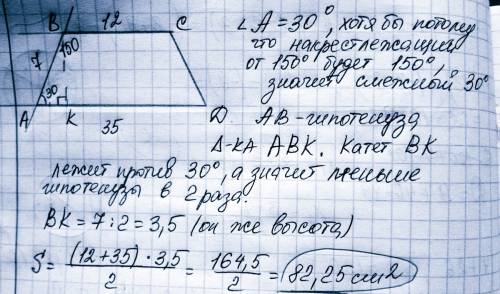 B 12 C
150
7
30
A K
35
∠A = 30°, хотя бы потому
что накрестлежащий
от 150° будет 150°,
значит смежный 30°
D. AB - гипотенуза
Δ-ка ABK. Катет BK
лежит против 30°, а значит меньше
гипотенузы в 2 раза.
BK = 7 : 2 = 3,5 (он же высота)
S = (12+35) · 3,5 / 2 = 164,5 / 2 = 82,25 см²